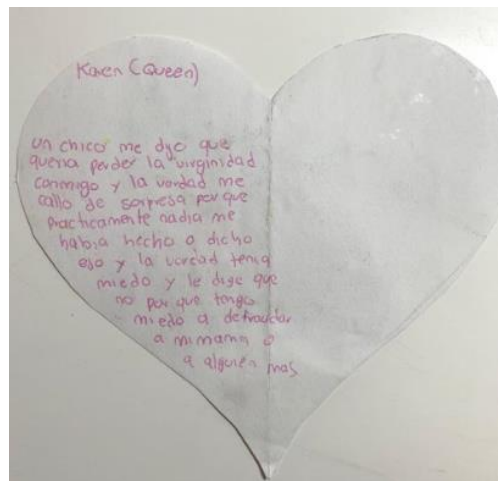 Karen (Queen)
un chico me dijo que
queria perder la virginidad
conmigo y la verdad me
callo de sorpresa por que
practicamente nadia me
habia hecho o dicho
eso y la verdad tenia
miedo y le dige que
no por que tengo
miedo a defraudar
a mi mama o
a alguien mas